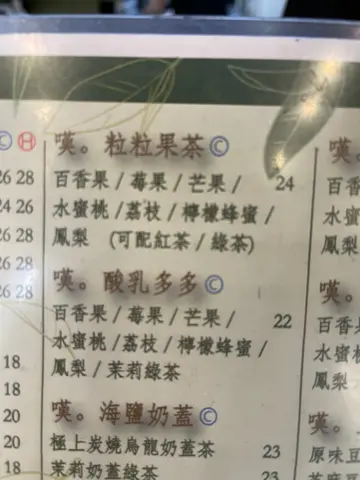 Ⓒ Ⓗ
26 28
24 26
26 28
26 28
26 28
18
18
20
20
18
嘆。粒粒果茶Ⓒ
百香果 / 莓果 / 芒果 / 24
水蜜桃 / 荔枝 / 檸檬蜂蜜 /
鳳梨 (可配紅茶 / 綠茶)
嘆。酸乳多多Ⓒ
百香果 / 莓果 / 芒果 / 22
水蜜桃 / 荔枝 / 檸檬蜂蜜 /
鳳梨 / 茉莉綠茶
嘆。海鹽奶蓋Ⓒ
極上炭燒烏龍奶蓋茶 23
茉莉奶蓋綠茶 23
嘆。
百香
水蜜
鳳梨
嘆。
百香果
水蜜
鳳梨
嘆。
原味豆